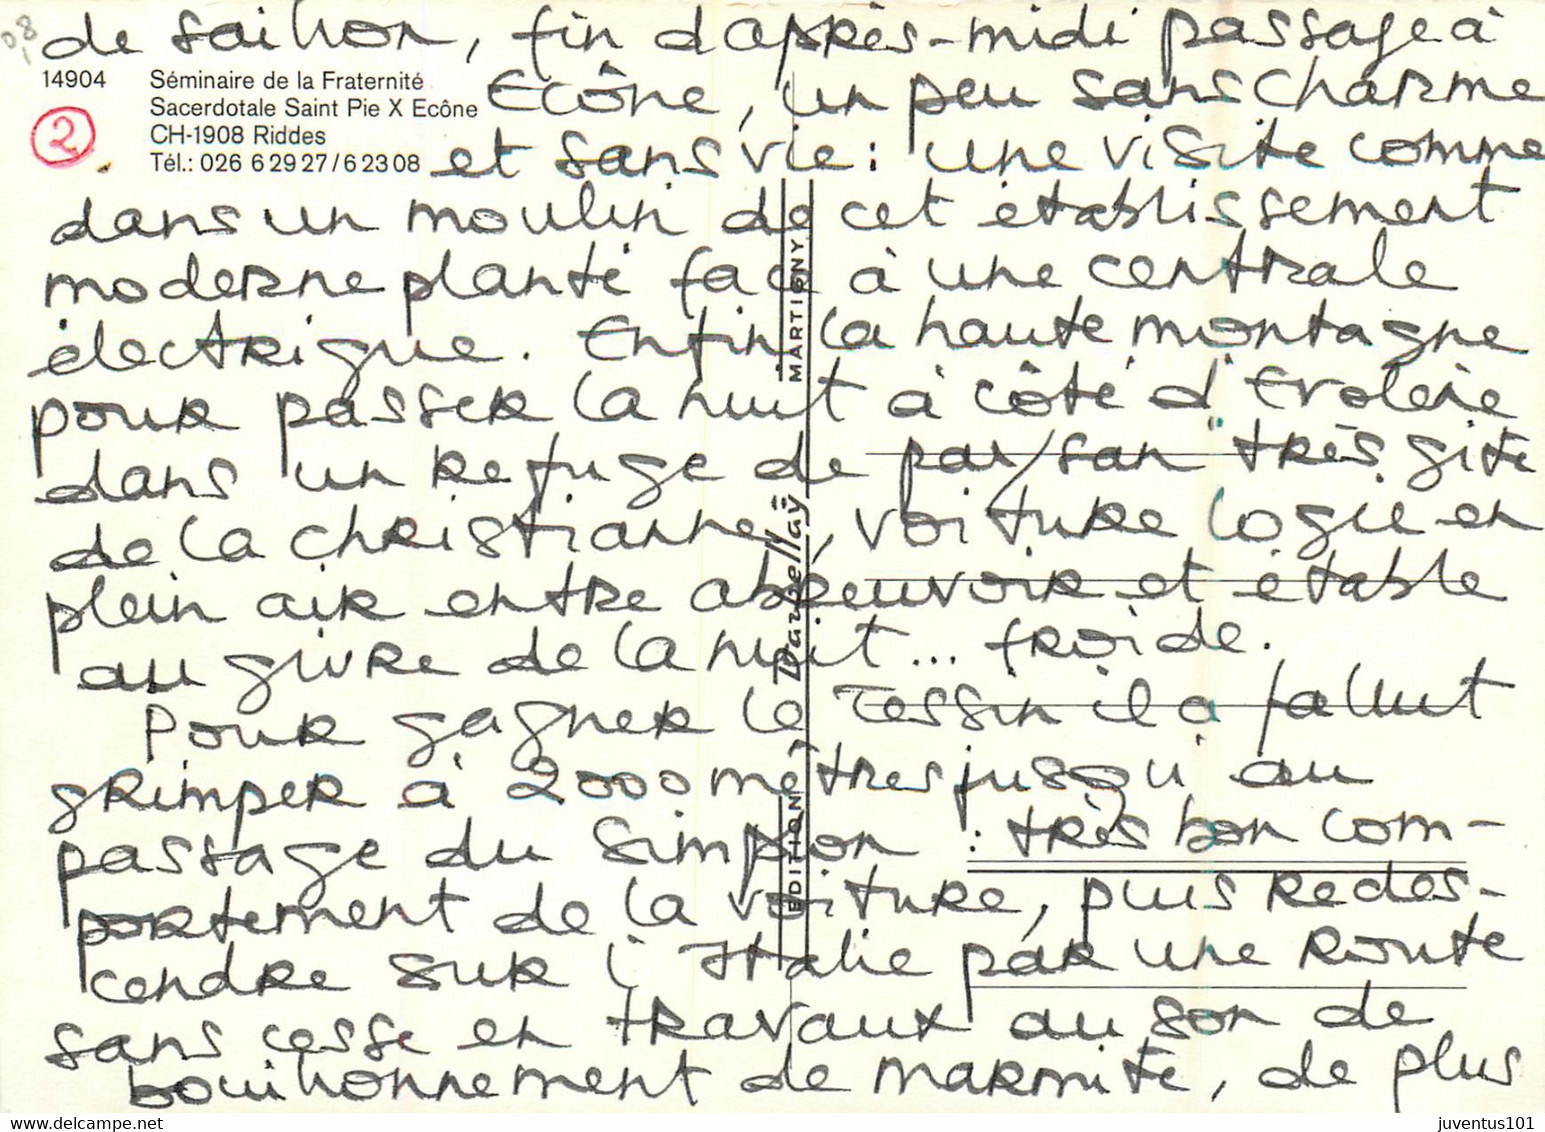 de Saillon, fin d'après-midi passage à
14904 Séminaire de la Fraternité
Sacerdotale Saint Pie X Ecône
CH-1908 Riddes
Tél.: 026 6 29 27 / 6 23 08
2
Ecône, un peu sans charme
et sans vie : une visite comme
dans un moulin de cet établissement
moderne planté face à une centrale
électrique. Enfin la haute montagne
pour passer la nuit à côté d'Evolène
dans un refuge de paysan très gîte
de la christianne, voiture logée en
plein air entre abreuvoir et étable
au givre de la nuit... froide.
Pour gagner le Tessin il a fallut
grimper à 2000 mètres jusqu'au
passage du Simplon : très bon com-
portement de la voiture, puis redes-
cendre sur l'Italie par une route
sans cesse en travaux au son de
bouillonnement de marmite, de plus
EDITION Darbellay MARTIGNY
juventus101